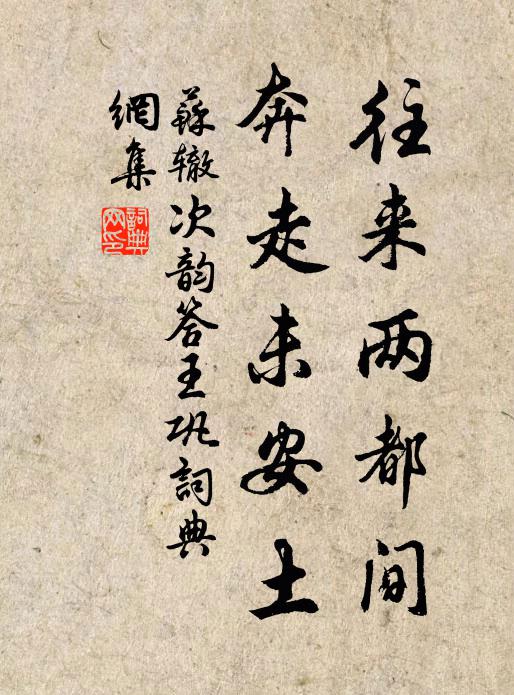 往来两都间
奔走未安土
蘇辙次韵答王巩詞典
網集
詞典网印